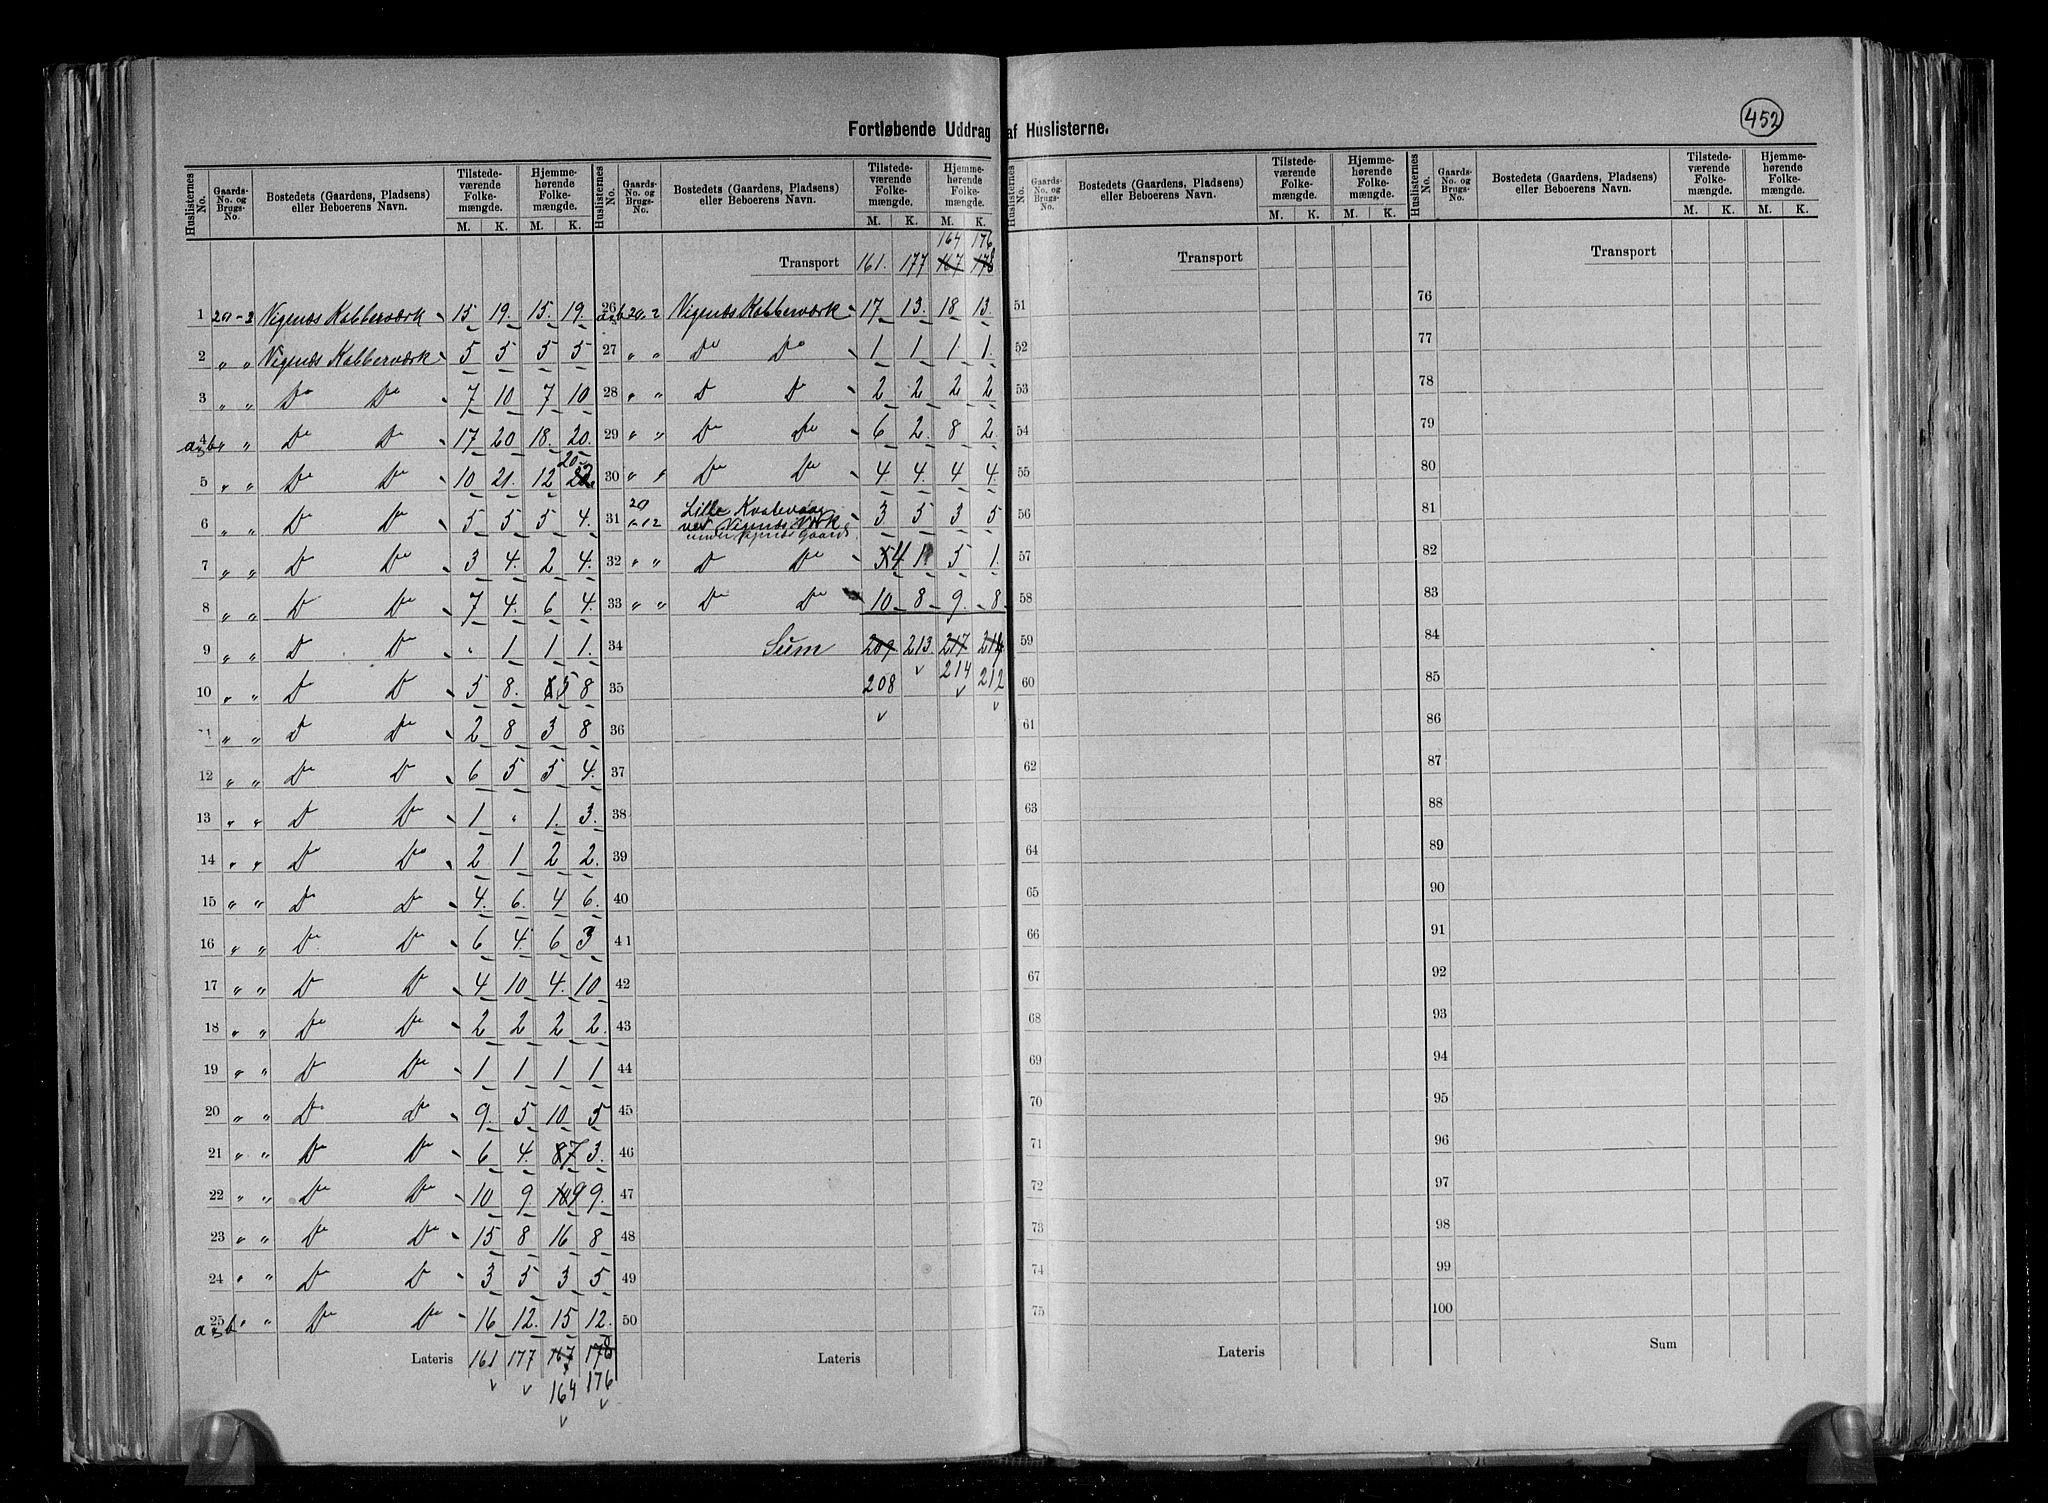 452
Fortløbende Uddrag af Huslisterne.
Huslisternes No. | Gaards-No. og Brugs-No. | Bostedets (Gaardens, Pladsens) eller Beboerens Navn. | Tilstedeværende Folkemængde. M. K. | Hjemmehørende Folkemængde. M. K.
1 20 - 2 Vigsnæs Kobberværk 15 19. 15. 19.
2 " " Vigsnæs Kobberværk 5 5 5 5
3 " " Do Do 7 10 7 10
4 a&b " " Do Do 17 20 18. 20.
5 " " Do Do 10 21. 12 20
6 " " Do Do 5 5 5 4.
7 " " Do Do 3 4. 2 4.
8 " " Do Do 7 4. 6 4.
9 " " Do Do " 1 1 1.
10 " " Do Do 5 8. 5 8
11 " " Do Do 2 8 3 8
12 " " Do Do 6 5 5 4.
13 " " Do Do 1 " 1. 3.
14 " " Do Do 2 1 2 2.
15 " " Do Do 4. 6. 4 6.
16 " " Do Do 6 4. 6 3
17 " " Do Do 4 10 4. 10
18 " " Do Do 2 2 2 2.
19 " " Do Do 1 1 1 1
20 " " Do Do 9 5 10. 5
21 " " Do Do 6 4. 87 3.
22 " " Do Do 10 9. 109 9.
23 " " Do Do 15 8 16 8
24 " " Do Do 3 5 3 5
25 a&b " " Do Do 16 12. 15 12.
Lateris 161 177 167 178
164 176
164 176
Transport 161. 177 167 178
26 a&b 20 " 2 Vigsnæs Kobberværk 17 13. 18 13.
27 " " Do Do 1 1 1 1.
28 " " Do Do 2 2 2 2
29 " " Do Do 6 2. 8 2.
30 " " Do Do 4 4. 4 4.
31 20 " 12 Lille Kvalevaag ved Vigsnæs Værk 3 5 3 5
32 " " Do Do 54 1 5 1.
33 " " Do Do 10 8 9. 8
34 Sum 209 213. 217 214
35 208 214 212
36
37
38
39
40
41
42
43
44
45
46
47
48
49
50
Lateris
Huslisternes No. | Gaards-No. og Brugs-No. | Bostedets (Gaardens, Pladsens) eller Beboerens Navn. | Tilstedeværende Folkemængde. M. K. | Hjemmehørende Folkemængde. M. K.
Transport
51
52
53
54
55
56
57
58
59
60
61
62
63
64
65
66
67
68
69
70
71
72
73
74
75
Lateris
Transport
76
77
78
79
80
81
82
83
84
85
86
87
88
89
90
91
92
93
94
95
96
97
98
99
100
Sum